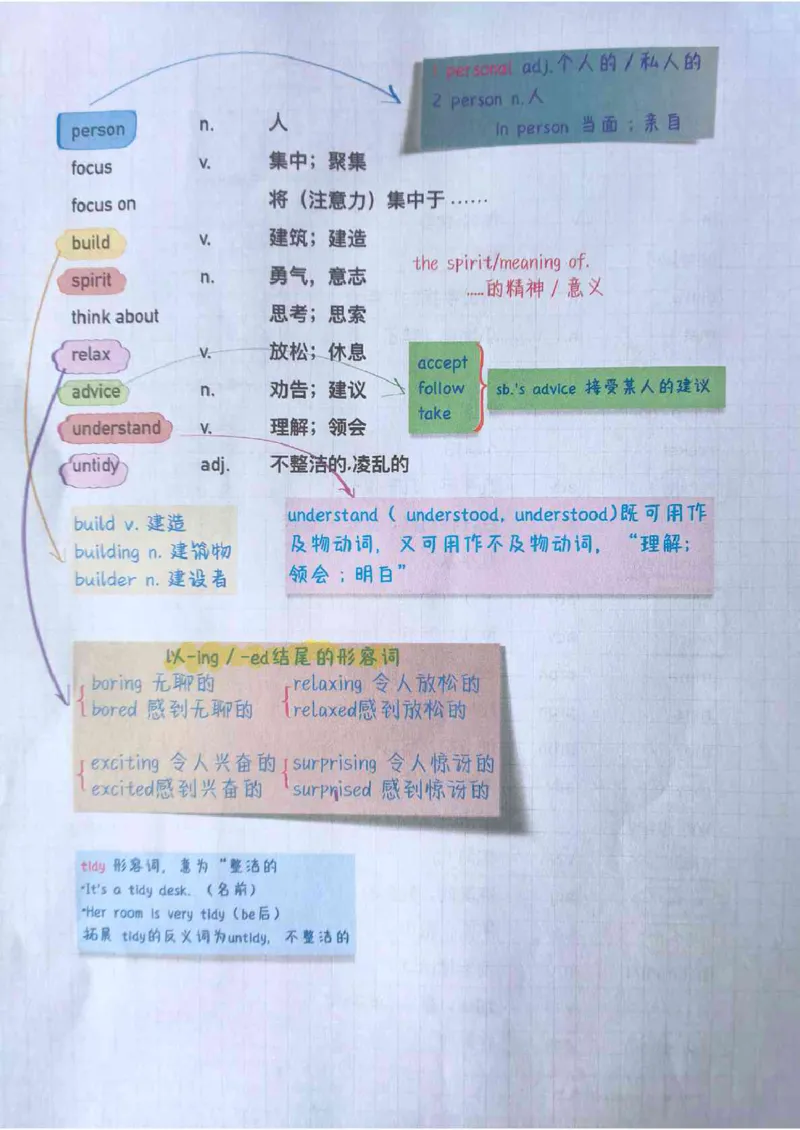 1 personal adj.个人的/私人的
2 person n.人
In person 当面；亲自
person n. 人
focus v. 集中；聚集
focus on 将（注意力）集中于……
build v. 建筑；建造
spirit n. 勇气，意志
the spirit/meaning of.
……的精神/意义
think about 思考；思索
relax v. 放松；休息
advice n. 劝告；建议
accept
follow
take
sb.'s advice 接受某人的建议
understand v. 理解；领会
untidy adj. 不整洁的.凌乱的
build v. 建造
building n. 建筑物
builder n. 建设者
understand（ understood, understood)既可用作
及物动词，又可用作不及物动词，“理解；
领会；明白”
以-ing/-ed结尾的形容词
boring 无聊的 relaxing 令人放松的
bored 感到无聊的 relaxed感到放松的
exciting 令人兴奋的 surprising 令人惊讶的
excited感到兴奋的 surprised 感到惊讶的
tidy 形容词，意为“整洁的
·It's a tidy desk.（名前）
·Her room is very tidy（be后）
拓展 tidy的反义词为untidy，不整洁的